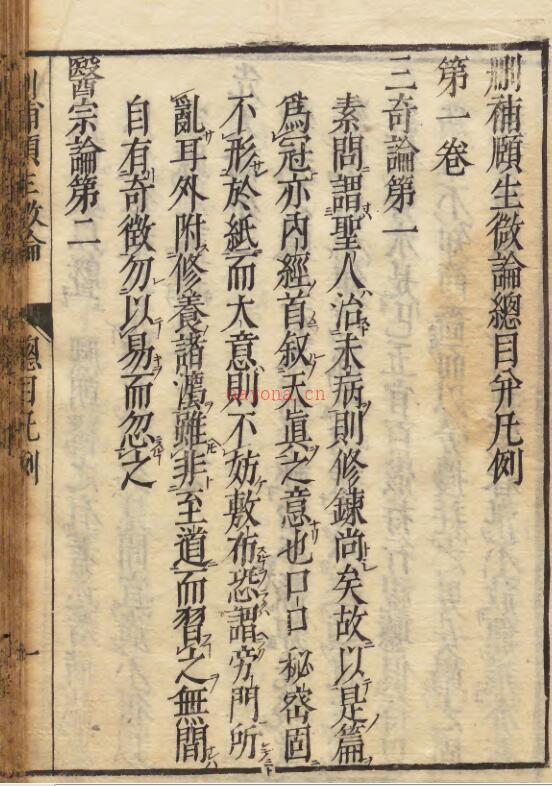 刪補頤生微論總目并凡例
第一卷
三奇論第一
素問謂聖人治未病則修鍊尚矣故以是篇
爲冠亦內經首叙天眞之意也口口秘密固
不形於紙而大意則不妨敷布恐謂旁門所
亂耳外附修養諸濡雖非至道而習之無間
自有奇徵勿以易而忽之
醫宗論第二
總目凡例
一
nayona.cn